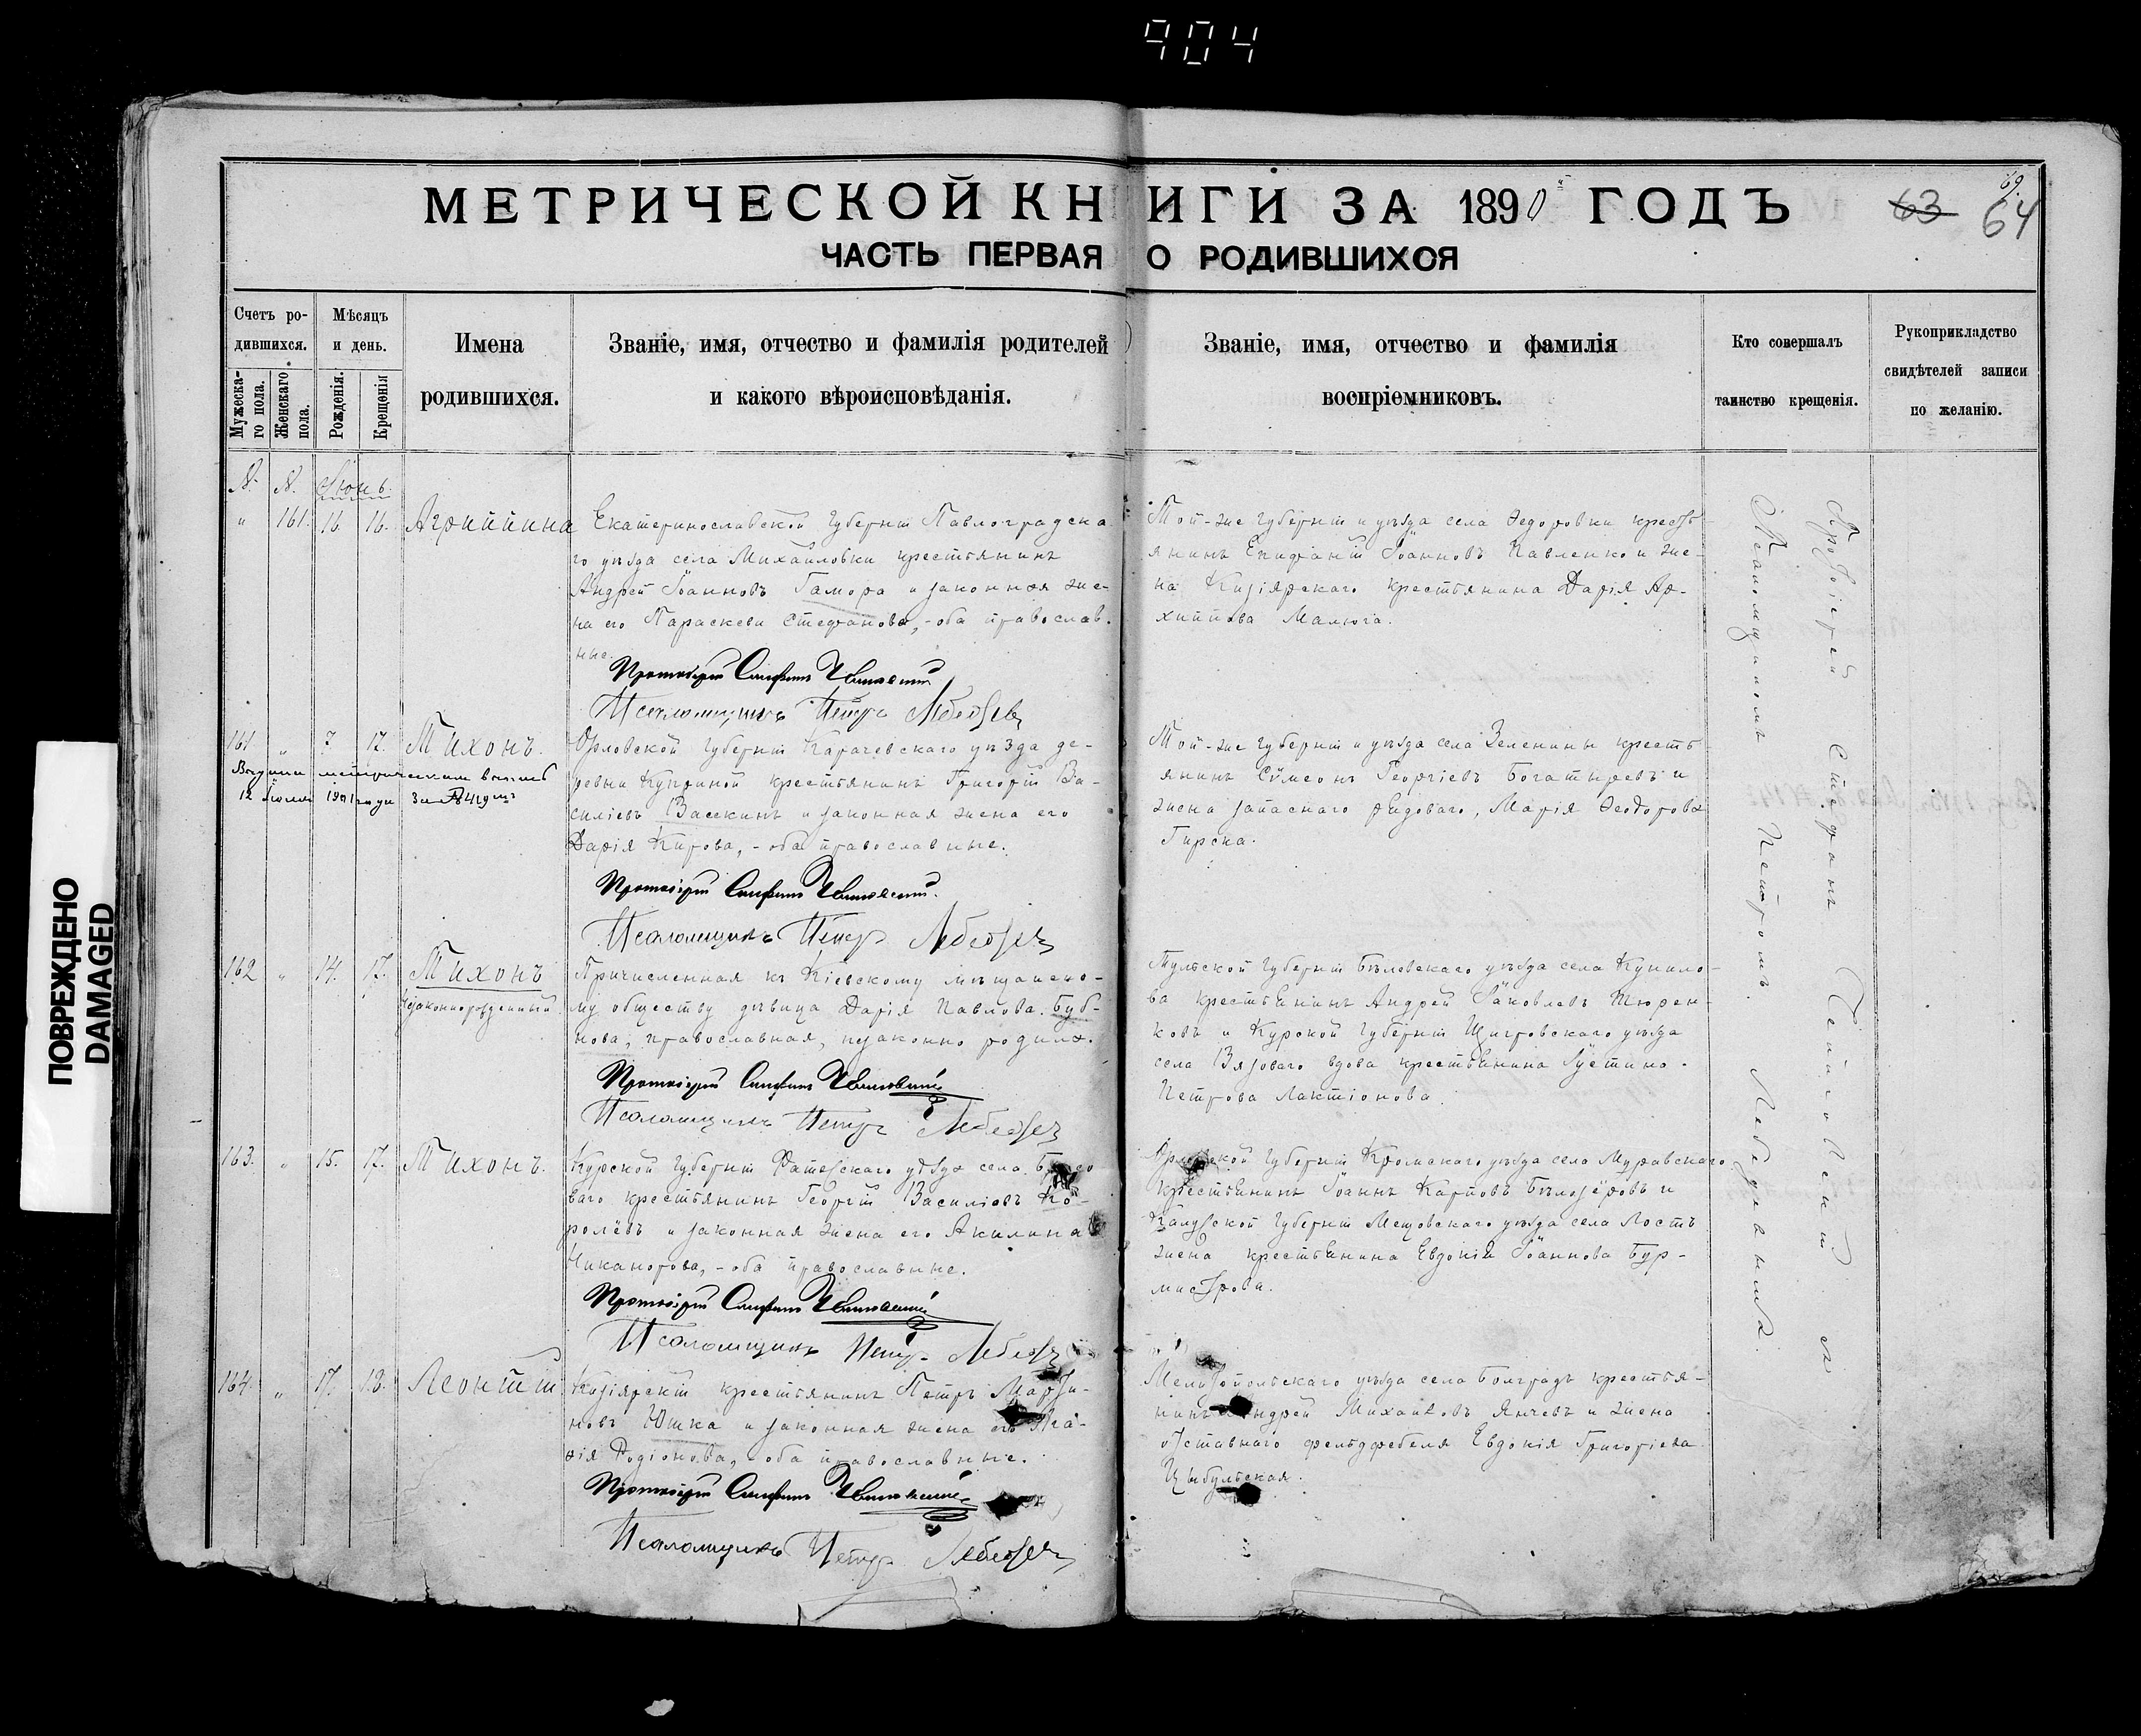 904
МЕТРИЧЕСКОЙ КНИГИ ЗА 1890й ГОДЪ
69.
63 64
ЧАСТЬ ПЕРВАЯ О РОДИВШИХСЯ
Счетъ ро-
дившихся.
Мужеска-
го пола.
Женскаго
пола.
Мѣсяцъ
и день.
Рожденія.
Крещенія
Имена
родившихся.
Званіе, имя, отчество и фамилія родителей
и какого вѣроисповѣданія.
Званіе, имя, отчество и фамилія
воспріемниковъ.
Кто совершалъ
таинство крещенія.
Рукоприкладство
свидѣтелей записи
по желанію.
№. №. Іюнь.
" 161. 16. 16. Агриппина
Екатеринославской губерніи Павлоградска-
го уѣзда села Михайловки крестьянинъ
Андрей Іоанновъ Гамора и законная же-
на его Параскева Стефанова, - оба православ-
ные.
Протоіерей Стефанъ
Псаломщикъ Петръ Лебедевъ
Той-же губерніи и уѣзда села Федоровки кресть-
янинъ Епифаній Іоанновъ Павленко и же-
на Кизіярскаго крестьянина Дарія Ар-
хиппова Малюга.
161 " 7 17. Тихонъ.
12 1901 года За № 419мъ
Орловской губерніи Карачевскаго уѣзда де-
ревни Куприной крестьянинъ Григорій Ва-
силіевъ Васекинъ и законная жена его
Дарія Кирова, - оба православные.
Протоіерей Стефанъ
Псаломщикъ Петръ Лебедевъ
Той-же губерніи и уѣзда села Зеленины кресть-
янинъ Сѵмеонъ Георгіевъ Богатыревъ и
жена запаснаго рядоваго, Марія Ѳеодорова
Гирска.
162 " 14. 17. Тихонъ
незаконнорожденный
Причисленная къ Кіевскому мѣщанско-
му обществу дѣвица Дарія Павлова Буб-
нова, православная, незаконно родила.
Протоіерей Стефанъ
Псаломщикъ Петръ Лебедевъ
Тульской губерніи Бѣлевскаго уѣзда села Кунило-
ва крестьянинъ Андрей Іаковлевъ Тюрен-
ковъ и Курской губерніи Щигровскаго уѣзда
села Вязоваго вдова крестьянина Іустина
Петрова Лактіонова.
163. " 15. 17. Тихонъ.
Курской губерніи Фатежскаго уѣзда села
ваго крестьянинъ Георгій Василіевъ Ко-
ролёвъ и законная жена его Акилина
Никанорова, - оба православные.
Протоіерей Стефанъ
Псаломщикъ Петръ Лебедевъ
Орловской губерніи Кромскаго уѣзда села Муравскаго
крестьянинъ Іоаннъ Карповъ Бѣлозёровъ и
Калужской губерніи Мещовскаго уѣзда села Лость
жена крестьянина Евдокія Іоаннова Бур-
мистрова.
164. " 17. 18. Леонтій
Кизіярскій крестьянинъ Петръ Марти-
новъ Юшка и законная жена его
Родіонова, - оба православные.
Протоіерей Стефанъ
Псаломщикъ Петръ Лебедевъ
Мелитопольскаго уѣзда села Болградъ крестья-
нинъ Андрей Михайловъ Янчевъ и жена
отставного фельдфебеля Евдокія Григоріева
Цыбульская.
Протоіерей Стефанъ съ
Псаломщикомъ Петромъ Лебедевымъ.
ПОВРЕЖДЕНО
DAMAGED